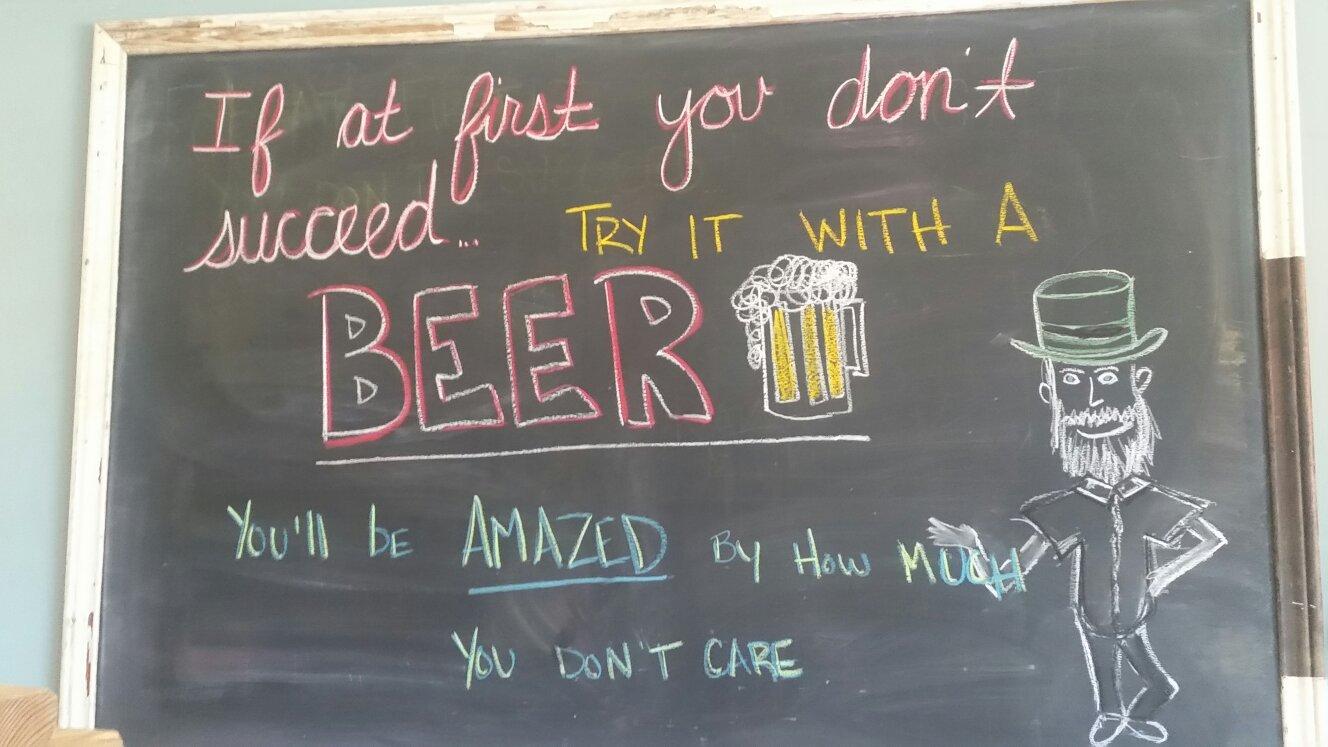 If at first you don't
succeed... TRY IT WITH A
BEER
You'll be AMAZED By How MUCH
You DON'T CARE